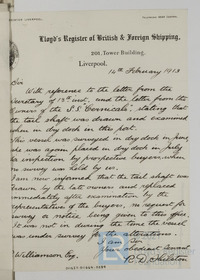 Lloyd's Register of British & Foreign Shipping,
206, Tower Building,
Liverpool,
14th February 1913
Sir
With reference to the letter from the
Secretary of 13th inst, and the letter from the
owners of the S.S. " stating that
the tail shaft was drawn and examined
when in dry dock in this port.
This vessel was surveyed in dry dock in June,
she was again placed in dry dock in July
for inspection by prospective buyers, when
no survey was held by us.
I am now informed that the tail shaft was
drawn by the late owners and replaced
immediately after examination by the
representative of the buyers, no request for
survey or notice being given to this office.
It was not in during the time the vessel
was under survey for the alterations.
I am Sir
Your obedient servant
Williamson, Esq.